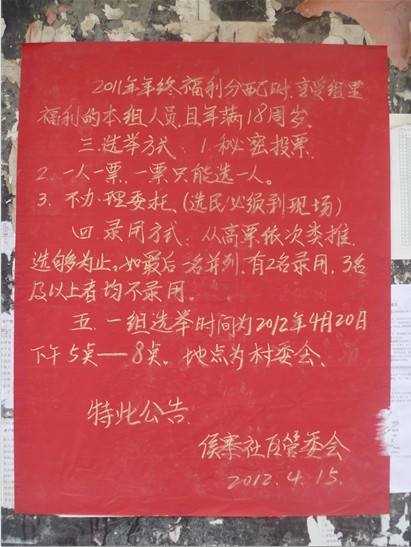 2011年年终福利分配时享受组里
福利的本组人员且年满18周岁、
三.选举方式:1.秘密投票.
2.一人一票,一票只能选一人。
3.不办理委托、(选民必须到现场)
四.录用方式:从高票依次类推,
选够为止。如最后一名并列,有2名录用,3名
及以上者均不录用。
五.一组选举时间为2012年4月20日
下午5点—8点。地点为村委会、
特此公告.
侯寨社区管委会
2012.4.15.